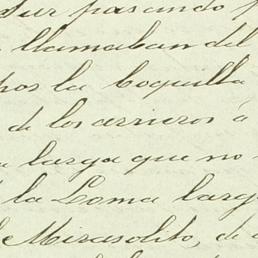 Sur pasando p
llamaban del
por la boquilla
de los arrieros á
larga que no
la Loma larg
Mirasolito, de